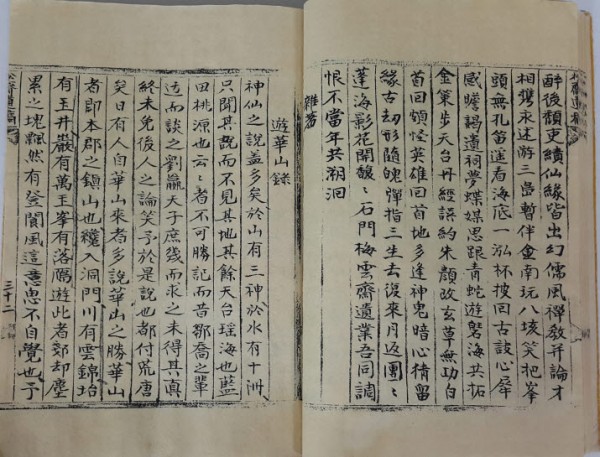 醉後頹吏續仙緣皆出幻儒風禪教并論才
相携永述游三島暫伴金南玩八垓笑把峯
頭無孔笛遥看海底一泓杯披回古談心犀
感蠟謁遺祠夢蝶媒思跟青蛇遊磐海共拓
金策步天台丹經誤約朱顏改玄草無功白
首回頗怪英雄回首地多逢神鬼暗心精留
緣古刧形隨魄彈指三生去復來月返團〻
蓬海影花開馥〻石門梅雲齋遺業吾同調
恨不當年共溯洄
雜著
遊華山錄
神仙之說蓋多矣於山有三神於水有十洲
只聞其說而不見其地其餘天台瑤海也藍
田桃源也云〻者不可勝記而昔鄒喬之輩
迃而談之劉嬴天子庶幾而求之未得其真
終未免後人之論笑予於是說也都付荒唐
矣日有人自華山來者多說華山之勝華山
者即本郡之鎮山也纔入洞門川有雲錦坮
有玉井巖有萬玉峯有落鴈遊此者郊却塵
累之塊飄然有登閬風這意思不自覺也予
三十二